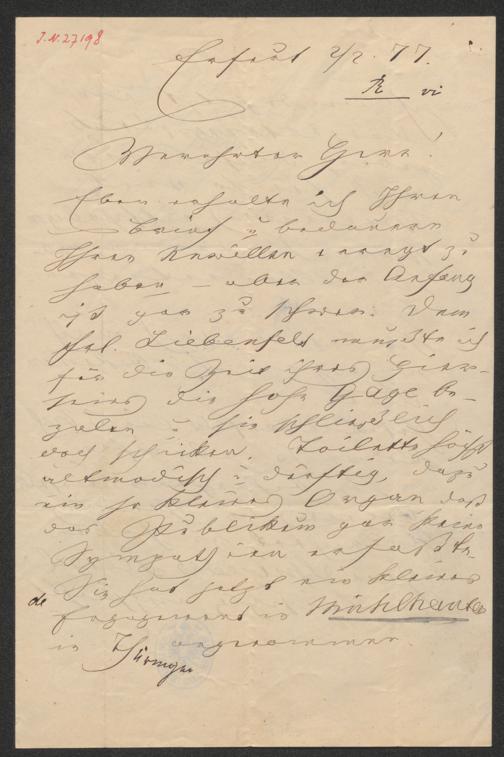 J.N. 27198
Erfurt 2/2. 77.
R vi
Verehrter Herr!
Eben erhalte ich Ihren
Brief u bedauere
Ihren Unwillen erregt zu
haben – aber der Anfang
ist gar zu schwer. Dem
Frl. Liebenfels mußte ich
für die Zeit ihres Hier-
seins die hohe Gage be-
zalen u sie schließlich
doch schicken. Toilette höchst
altmodisch u dürftig, dazu
ein so kleines Organ daß
das Publikum gar keine
Sympathien erfaßte.
Sie hat jetzt ein kleines
Engagement in Mühlhausen
de
in Thüringen angenommen.